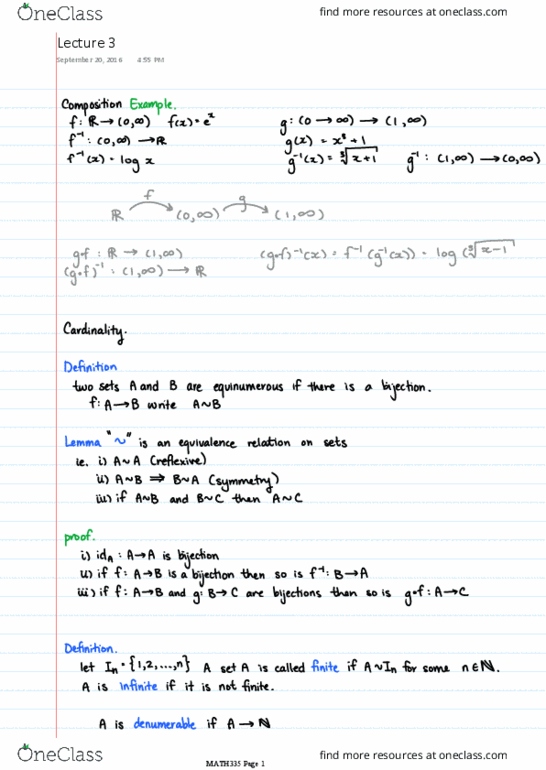 OneClass find more resources at oneclass.com
Lecture 3
September 20, 2016 4:55 PM
Composition Example.
f: ℝ → (0,∞) f(x) = eˣ g: (0 → ∞) → (1,∞)
f⁻¹: (0,∞) → ℝ g(x) = x³+1
f⁻¹(x) = log x g⁻¹(x) = ∛(x+1) g⁻¹: (1,∞) → (0,∞)
f g
ℝ (0,∞) (1,∞)
g∘f : ℝ → (1,∞) (g∘f)⁻¹(x) = f⁻¹(g⁻¹(x)) = log(∛(x-1)
(g∘f)⁻¹ : (1,∞) → ℝ
Cardinality.
Definition
two sets A and B are equinumerous if there is a bijection.
f: A→B write A~B
Lemma "~" is an equivalence relation on sets
ie. i) A~A (reflexive)
ii) A~B ⇒ B~A (symmetry)
iii) if A~B and B~C then A~C
proof.
i) id_A : A→A is bijection
ii) if f: A→B is a bijection then so is f⁻¹: B→A
iii) if f: A→B and g: B→C are bijections then so is g∘f: A→C
Definition.
let Iₙ = {1,2,...,n} A set A is called finite if A~Iₙ for some n∈ℕ.
A is infinite if it is not finite.
A is denumerable if A→ℕ
OneClass find more resources at oneclass.com
MATH335 Page 1